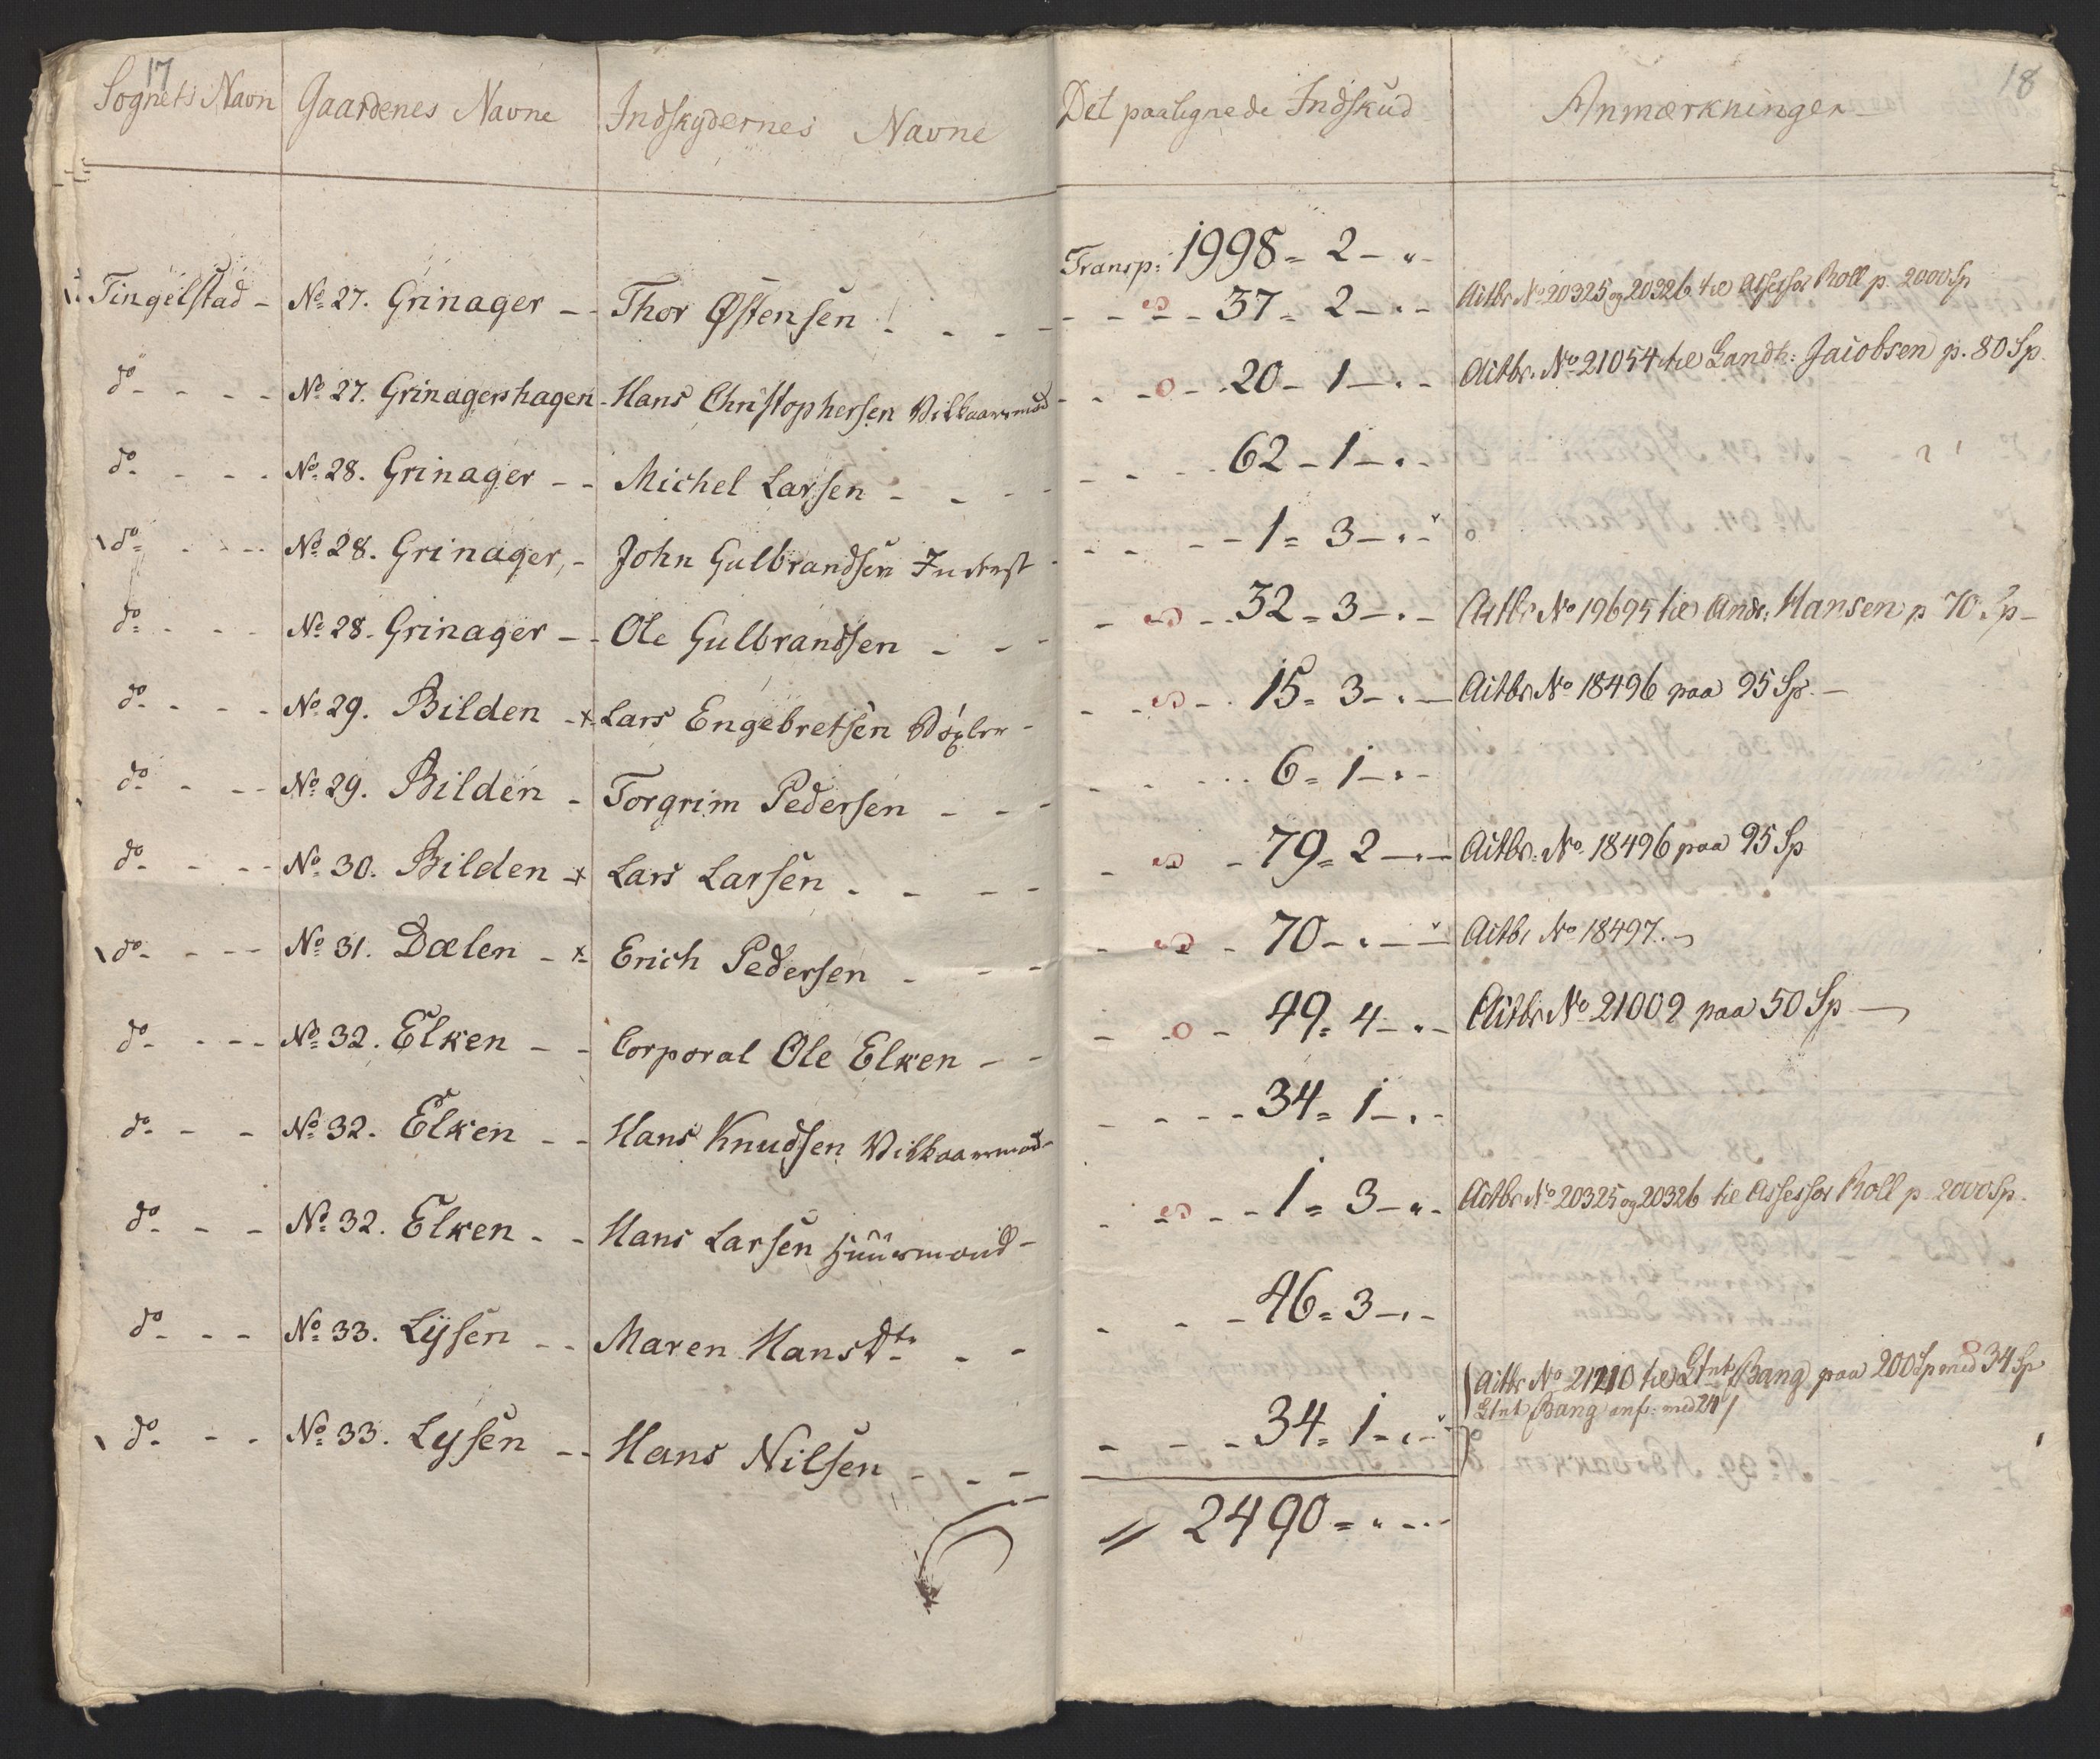 17
18
Sognets Navn Gaardenes Navne Indskydernes Navne Det paalignede Indskud Anmærkninger
Transp: 1998 = 2 - " -
Tingelstad - No 27. Grinager - - Thor Østensen - - - - 37 = 2 - " - Actbr No 20325 og 20326 til Assessor Roll p. 2000 Sp
do - - - No 27. Grinagershagen - Hans Christophersen Vilkaarsmd - - - 20 - 1 - " - Actbr. No 21054 til Landh: Jacobsen p. 80 Sp.
do - - - No 28. Grinager - - Michel Larsen - - - - 62 - 1 - " -
do - - - No 28. Grinager, - John Gulbrandsen Inderst - - - 1 = 3 - " -
do - - - No 28. Grinager - - Ole Gulbrandsen - - - 32 = 3 - " - Actbr No 19695 til Andr: Hansen p 70 Sp -
do - - - No 29. Bilden - x Lars Engebretsen - - - 15 = 3 - " - Actbr No 18496 paa 95 Sp. -
do - - - No 29. Bilden - Torgrim Pedersen - - - 6 = 1 - " -
do - - - No 30. Bilden - x Lars Larsen - - - - 79 = 2 - " - Actbr. No 18496 paa 95 Sp
do - - - No 31. Dælen - x Erich Pedersen - - - 70 - " - " - Actbr No 18497. -
do - - - No 32. Elken - - Corporal Ole Elken - - - 49 = 4 - " - Actbr No 21002 paa 50 Sp -
do - - - No 32. Elken - - Hans Knudsen Vilkaarsmd - - - 34 = 1 - " -
do - - - No 32. Elken - - Hans Larsen Huusmand - - - 1 = 3 - " - Actbr No 20325 og 20326 til Assessor Roll p 2000 Sp.
do - - - No 33. Lysen - - Maren HansDtr - - - 46 = 3 - " -
Actbr No 21210 til Ltnt Bang paa 200 Sp med 34 Sp
Ltnt Bang anf: med 24
do - - - No 33. Lysen - - Hans Nilsen - - - 34 = 1 - " -
2490 = " - " -